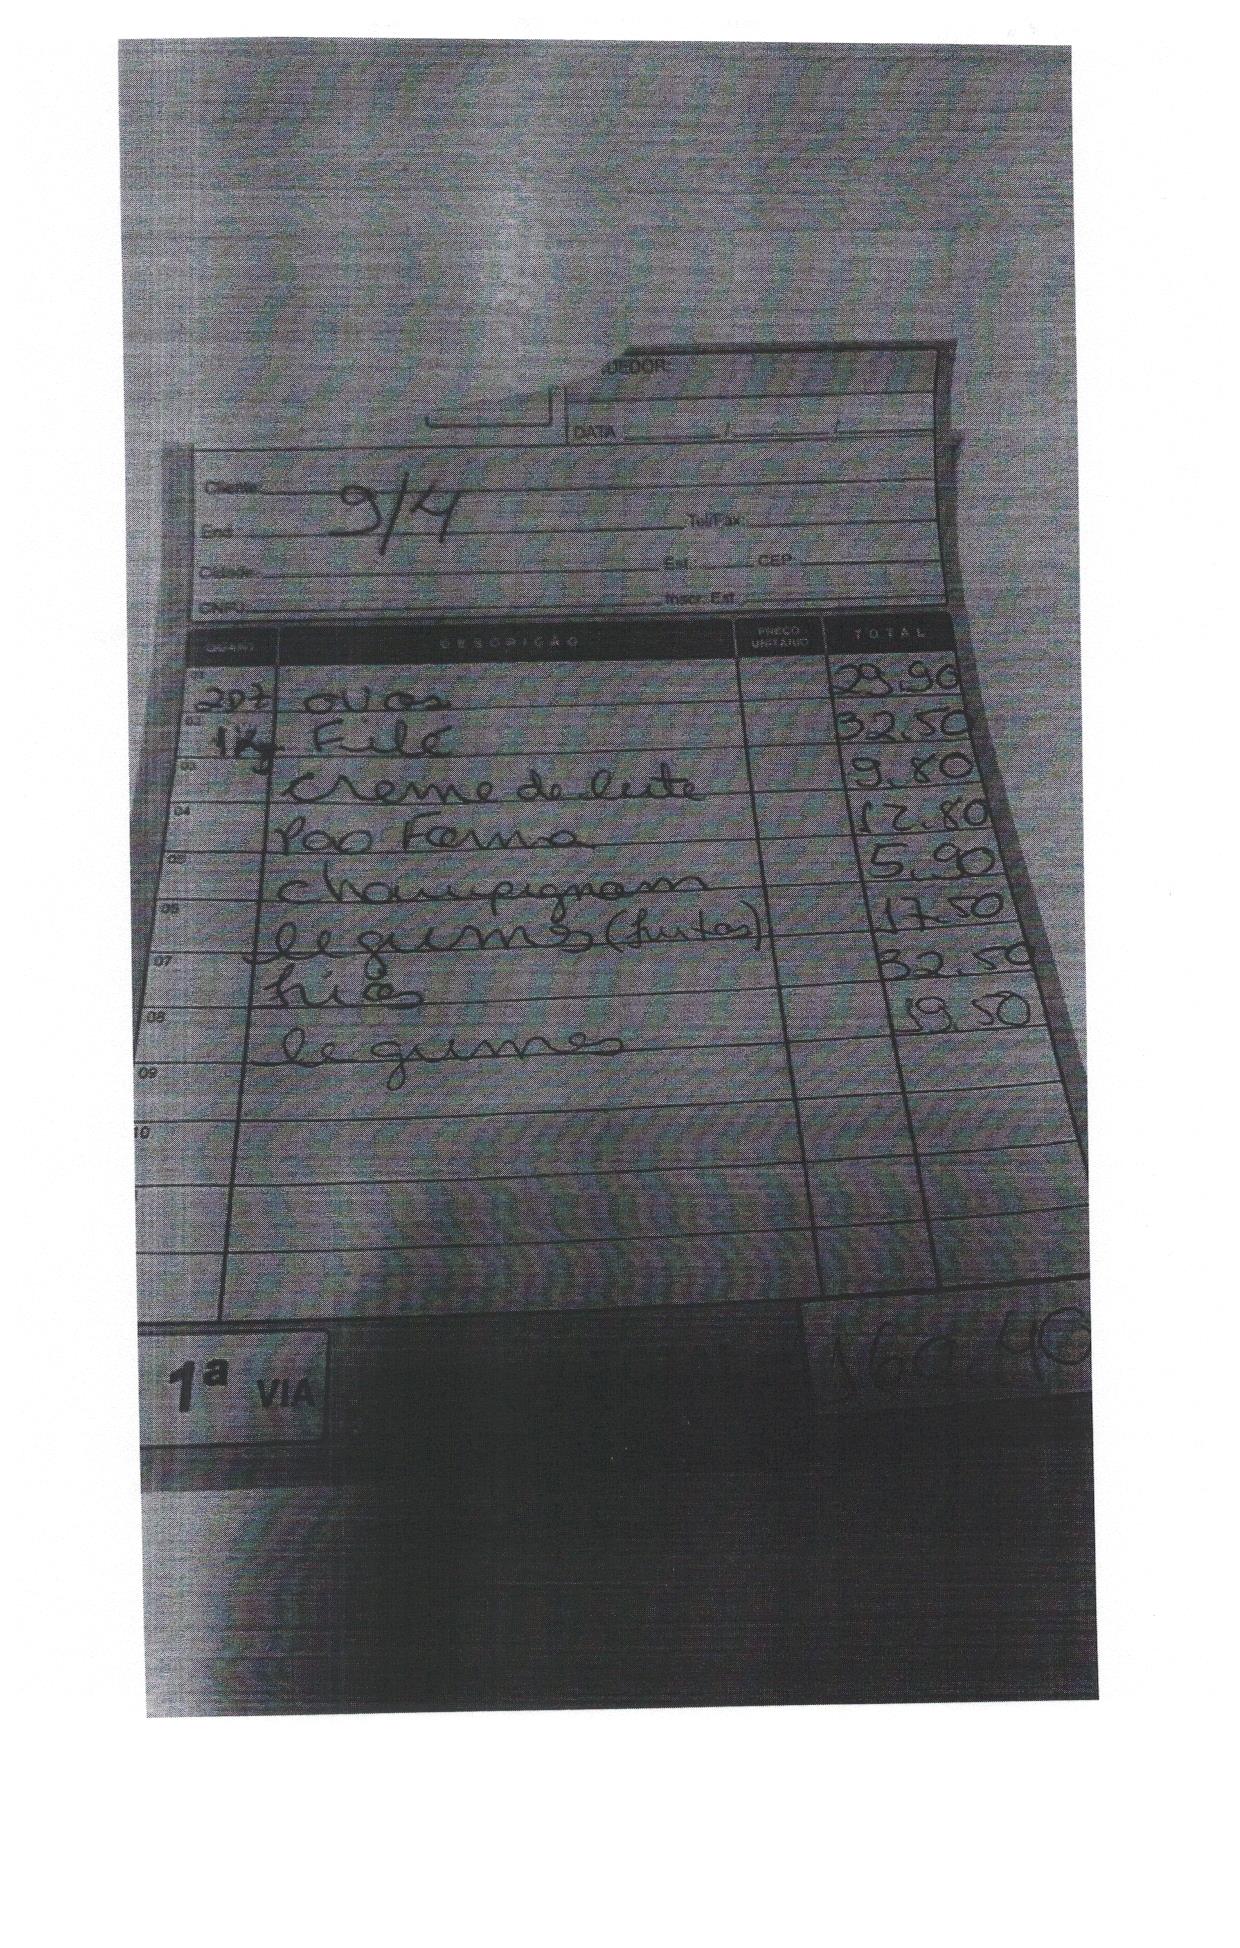 UEDOR:
DATA / /
Cliente:
9/4
End. Tel/Fax:
Cidade: Est.: CEP
CNPJ: Inscr. Est.
QUANT. DESCRIÇÃO PREÇO UNITÁRIO TOTAL
01 2Dz ovos 29,90
02 1Kg Filé 32.50
03 creme de leite 9.80
04 Pao Forma 12.80
05 champignom 5.90
06 legumes (frutas) 17.50
07 frios 32.50
08 legumes 19.50
09
10
1ª VIA 160,40